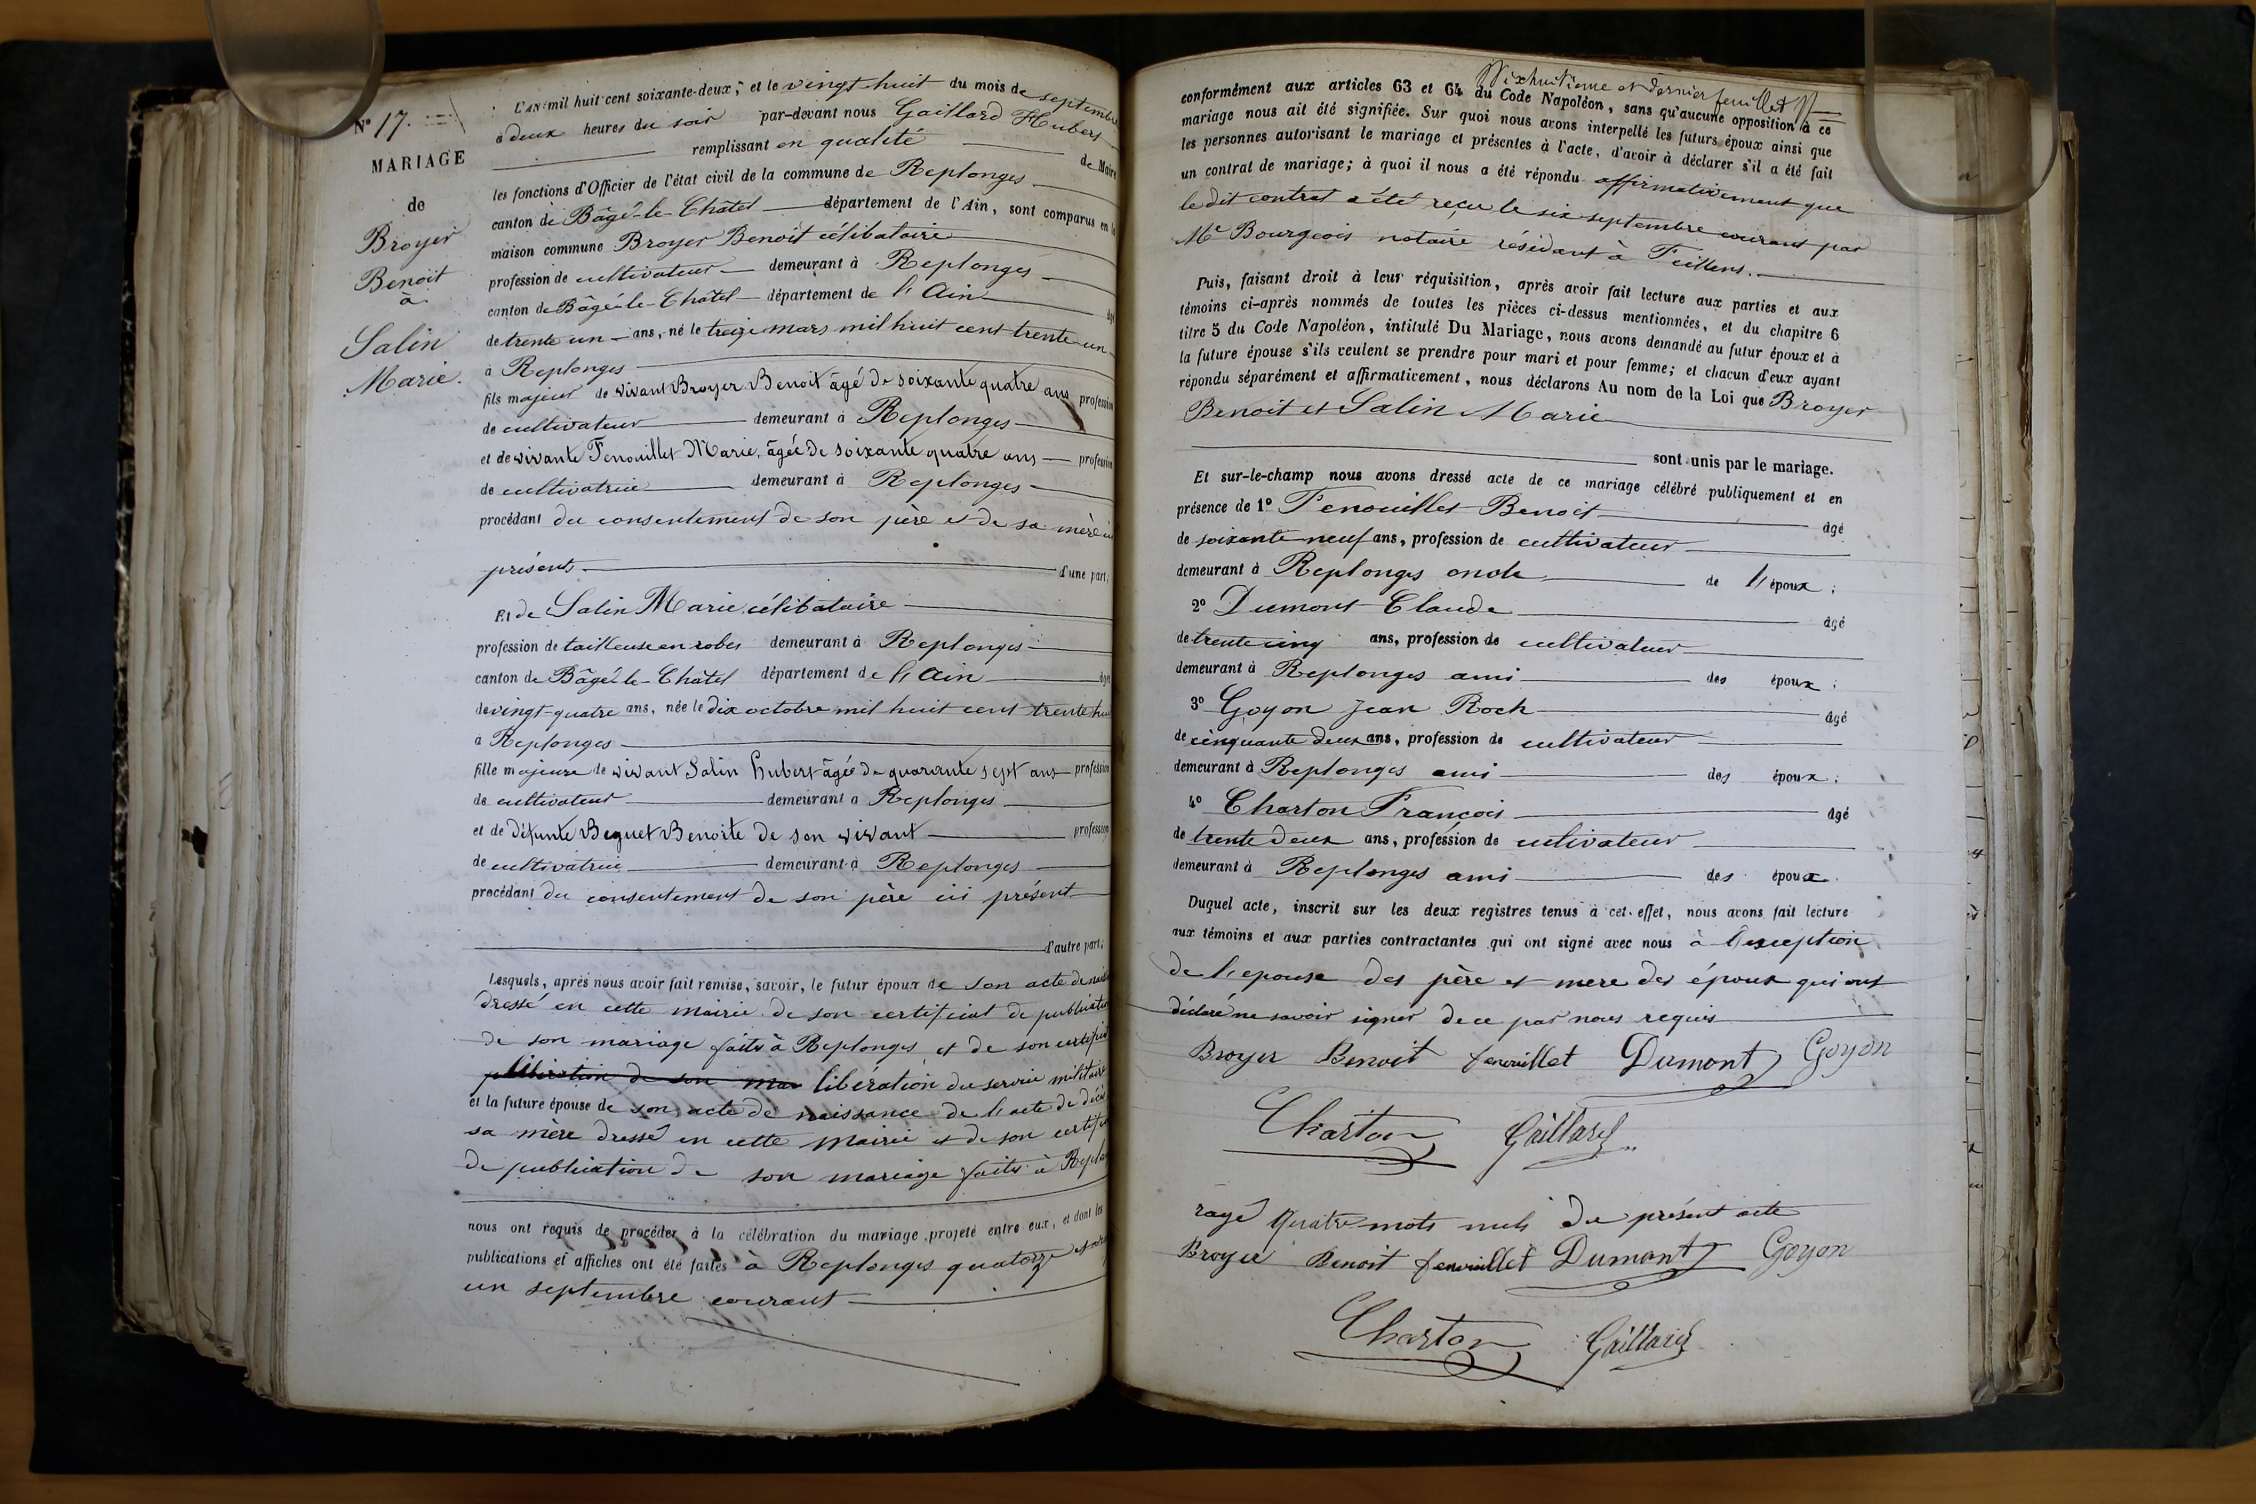 N° 17.
MARIAGE
de
Broyer
Benoit
à
Salin
Marie.
L'AN mil huit cent soixante-deux, et le vingt huit du mois de septembre
à deux heures du soir par-devant nous Gaillard Hubert
remplissant en qualité de Maire
les fonctions d'Officier de l'état civil de la commune de Replonges
canton de Bâgé-le-Châtel département de l'Ain, sont comparus en la
maison commune Broyer Benoit célibataire
profession de cultivateur demeurant à Replonges
canton de Bâgé-le-Châtel département de l'Ain âgé
de trente un ans, né le treize mars mil huit cent trente un
à Replonges
fils majeur de vivant Broyer Benoit âgé de soixante quatre ans profession
de cultivateur demeurant à Replonges
et de vivante Fenouillet Marie, âgée de soixante quatre ans profession
de cultivatrice demeurant à Replonges
procédant du consentement de son père et de sa mère ici
présents d'une part;
Et de Salin Marie célibataire
profession de tailleuse en robes demeurant à Replonges
canton de Bâgé-le-Châtel département de l'Ain âgée
de vingt-quatre ans, née le dix octobre mil huit cent trente huit
à Replonges
fille majeure de vivant Salin Hubert âgé de quarante sept ans profession
de cultivateur demeurant à Replonges
et de défunte Beguet Benoite de son vivant profession
de cultivatrice demeurant à Replonges
procédant du consentement de son père ici présent
d'autre part;
Lesquels, après nous avoir fait remise, savoir, le futur époux de son acte de
dressé en cette mairie de son certificat de publication
de son mariage faits à Replonges et de son certificat
libération de son mar libération du service militaire
et la future épouse de son acte de naissance de l'acte de décès
sa mère dressé en cette mairie et de son certificat
de publication de son mariage faits à Replonges
nous ont requis de procéder à la célébration du mariage projeté entre eux, et dont les
publications et affiches ont été faites à Replonges quatorze et vingt
un septembre courant
Dixhuitième et dernier feuillet
conformément aux articles 63 et 64 du Code Napoléon, sans qu'aucune opposition à ce
mariage nous ait été signifiée. Sur quoi nous avons interpellé les futurs époux ainsi que
les personnes autorisant le mariage et présentes à l'acte, d'avoir à déclarer s'il a été fait
un contrat de mariage; à quoi il nous a été répondu affirmativement que
le dit contrat a été reçu le six septembre courant par
Me Bourgeois notaire résidant à Feillens.
Puis, faisant droit à leur réquisition, après avoir fait lecture aux parties et aux
témoins ci-après nommés de toutes les pièces ci-dessus mentionnées, et du chapitre 6
titre 5 du Code Napoléon, intitulé Du Mariage, nous avons demandé au futur époux et à
la future épouse s'ils veulent se prendre pour mari et pour femme; et chacun d'eux ayant
répondu séparément et affirmativement, nous déclarons Au nom de la Loi que Broyer
Benoit et Salin Marie
sont unis par le mariage.
Et sur-le-champ nous avons dressé acte de ce mariage célébré publiquement et en
présence de 1° Fenouillet Benoit âgé
de soixante neuf ans, profession de cultivateur
demeurant à Replonges oncle de l'époux;
2° Dumont Claude âgé
de trente cinq ans, profession de cultivateur
demeurant à Replonges ami des époux;
3° Goyon Jean Roch âgé
de cinquante deux ans, profession de cultivateur
demeurant à Replonges ami des époux;
4° Charton François âgé
de trente deux ans, profession de cultivateur
demeurant à Replonges ami des époux.
Duquel acte, inscrit sur les deux registres tenus à cet effet, nous avons fait lecture
aux témoins et aux parties contractantes qui ont signé avec nous à l'exception
de l'epouse des père et mere des époux qui ont
déclaré ne savoir signer de ce par nous requis
Broyer Benoit fenouillet Dumont Goyon
Charton Gaillard
rayé quatre mots nuls du présent acte
Broyer Benoit fenouillet Dumont Goyon
Charton Gaillard